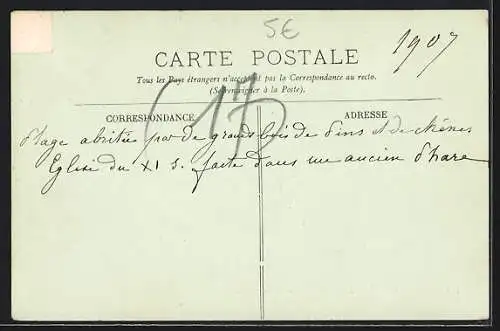 5€
1907
CARTE POSTALE
Tous les Pays étrangers n'acceptent pas la Correspondance au recto.
(Se renseigner à la Poste).
CORRESPONDANCE
ADRESSE
Plage abritée par de grands bois de Pins & de chênes
Eglise du XI S. faite dans un ancien Phare